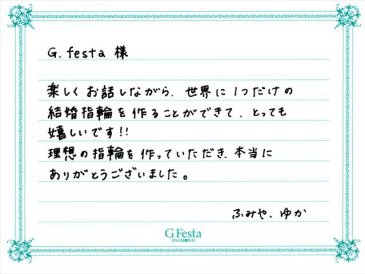 G.festa 様
楽しくお話しながら、世界に1つだけの
結婚指輪を作ることができて、とっても
嬉しいです!!
理想の指輪を作っていただき、本当に
ありがとうございました。
ふみや、ゆか
G.Festa